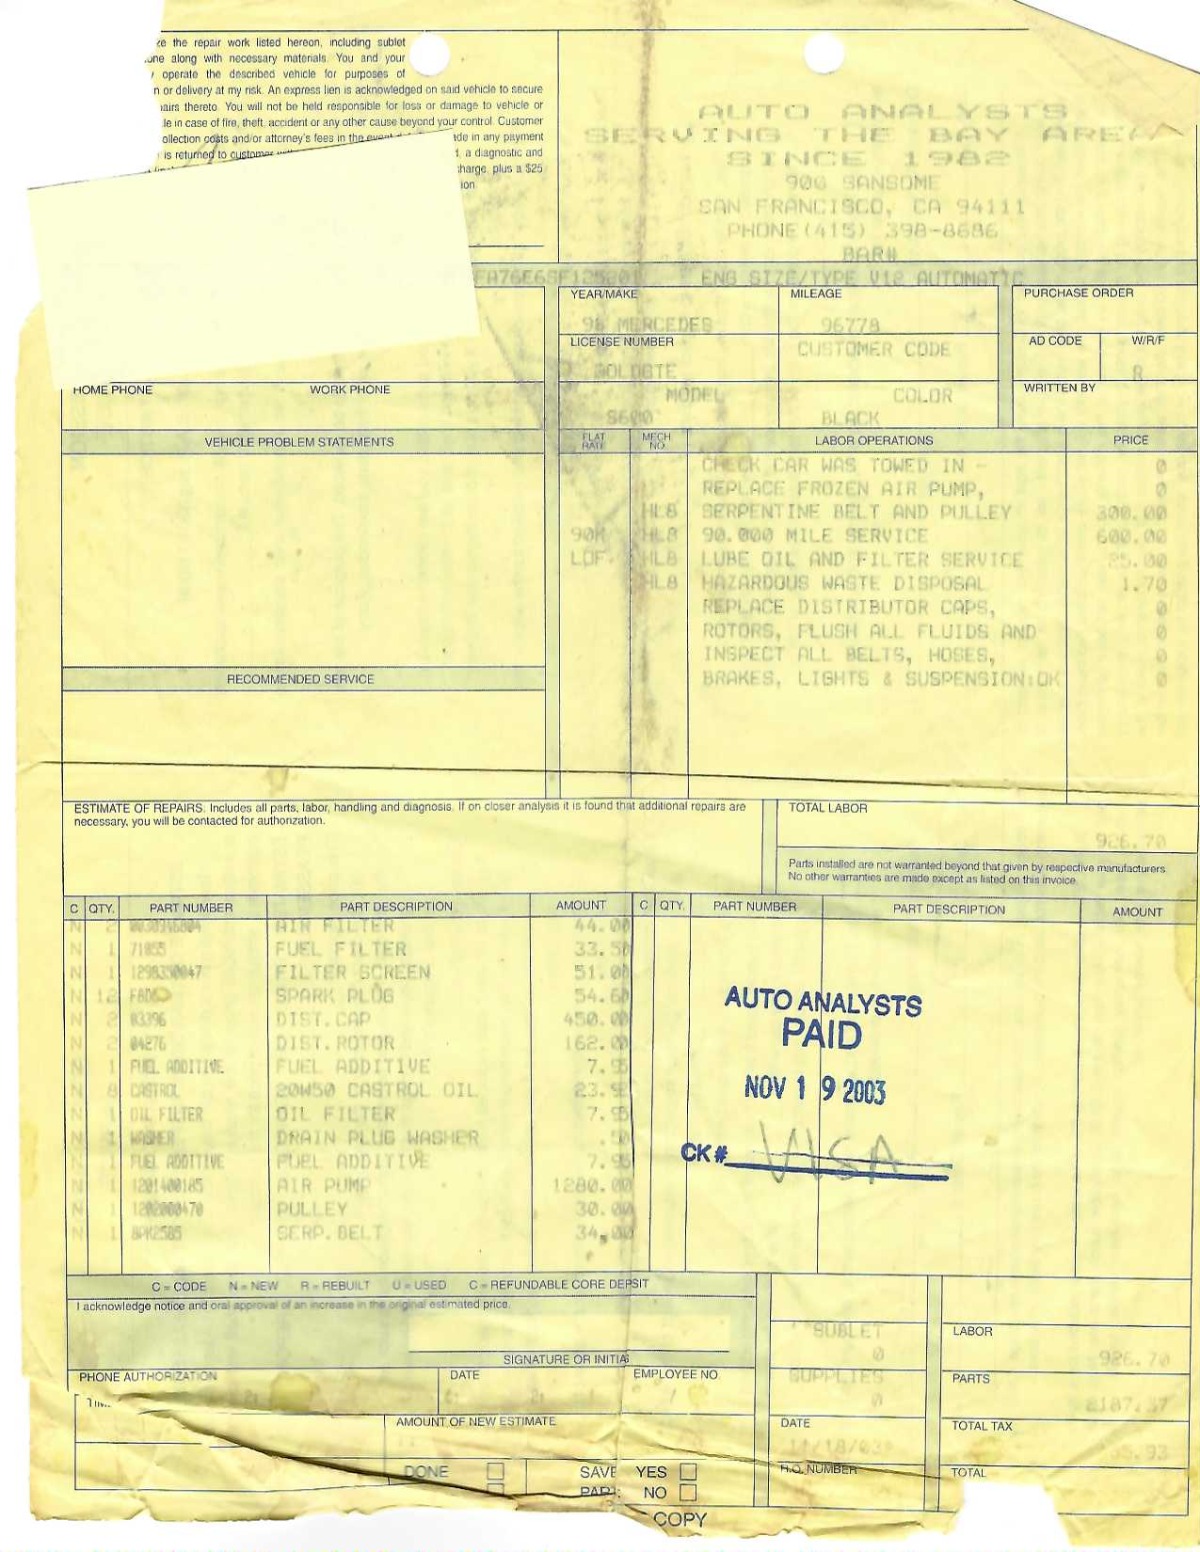 ze the repair work listed hereon, including sublet
one along with necessary materials. You and your
operate the described vehicle for purposes of
n or delivery at my risk. An express lien is acknowledged on said vehicle to secure
airs thereto. You will not be held responsible for loss or damage to vehicle or
le in case of fire, theft, accident or any other cause beyond your control. Customer
ollection costs and/or attorney's fees in the event ade in any payment
is returned to customer a diagnostic and
charge, plus a $25
ion.
AUTO ANALYSTS
SERVING THE BAY AREA
SINCE 1982
906 SANSOME
SAN FRANCISCO, CA 94111
PHONE(415) 398-8686
BAR#
ENG SIZE/TYPE V12 AUTOMATIC
YEAR/MAKE MILEAGE PURCHASE ORDER
96778
LICENSE NUMBER CUSTOMER CODE AD CODE W/R/F
R
HOME PHONE WORK PHONE MODEL COLOR WRITTEN BY
S600 BLACK
VEHICLE PROBLEM STATEMENTS FLAT RATE MECH NO. LABOR OPERATIONS PRICE
CHECK CAR WAS TOWED IN - 0
REPLACE FROZEN AIR PUMP, 0
HL8 SERPENTINE BELT AND PULLEY 300.00
HL8 90.000 MILE SERVICE 600.00
LOF. HL8 LUBE OIL AND FILTER SERVICE 25.00
HL8 HAZARDOUS WASTE DISPOSAL 1.70
REPLACE DISTRIBUTOR CAPS, 0
ROTORS, FLUSH ALL FLUIDS AND 0
INSPECT ALL BELTS, HOSES, 0
BRAKES, LIGHTS & SUSPENSION:OK 0
RECOMMENDED SERVICE
ESTIMATE OF REPAIRS. Includes all parts, labor, handling and diagnosis. If on closer analysis it is found that additional repairs are
necessary, you will be contacted for authorization.
TOTAL LABOR
926.70
Parts installed are not warranted beyond that given by respective manufacturers.
No other warranties are made except as listed on this invoice.
C QTY. PART NUMBER PART DESCRIPTION AMOUNT C QTY. PART NUMBER PART DESCRIPTION AMOUNT
N 2 AIR FILTER 44.00
N 1 FUEL FILTER 33.50
N 1 FILTER SCREEN 51.00
N 12 SPARK PLUG 54.60
N 2 03396 DIST.CAP 450.00
N 2 04276 DIST.ROTOR 162.00
N 1 FUEL ADDITIVE FUEL ADDITIVE 7.95
N 8 CASTROL 20W50 CASTROL OIL 23.92
N 1 OIL FILTER OIL FILTER 7.95
N 1 WASHER DRAIN PLUG WASHER .50
N 1 FUEL ADDITIVE FUEL ADDITIVE 7.95
N 1 1201400185 AIR PUMP 1280.00
N 1 PULLEY 30.00
N 1 8PK2585 SERP.BELT 34.00
AUTO ANALYSTS
PAID
NOV 19 2003
CK# VISA
C = CODE N = NEW R = REBUILT U = USED C = REFUNDABLE CORE DEPSIT
I acknowledge notice and oral approval of an increase in the original estimated price.
SIGNATURE OR INITIA
SUBLET
0
LABOR
926.70
PHONE AUTHORIZATION DATE EMPLOYEE NO.
SUPPLIES
0
PARTS
2187.37
AMOUNT OF NEW ESTIMATE
DATE
11/18/03
TOTAL TAX
DONE SAVE YES
PART NO
R.O. NUMBER
TOTAL
COPY